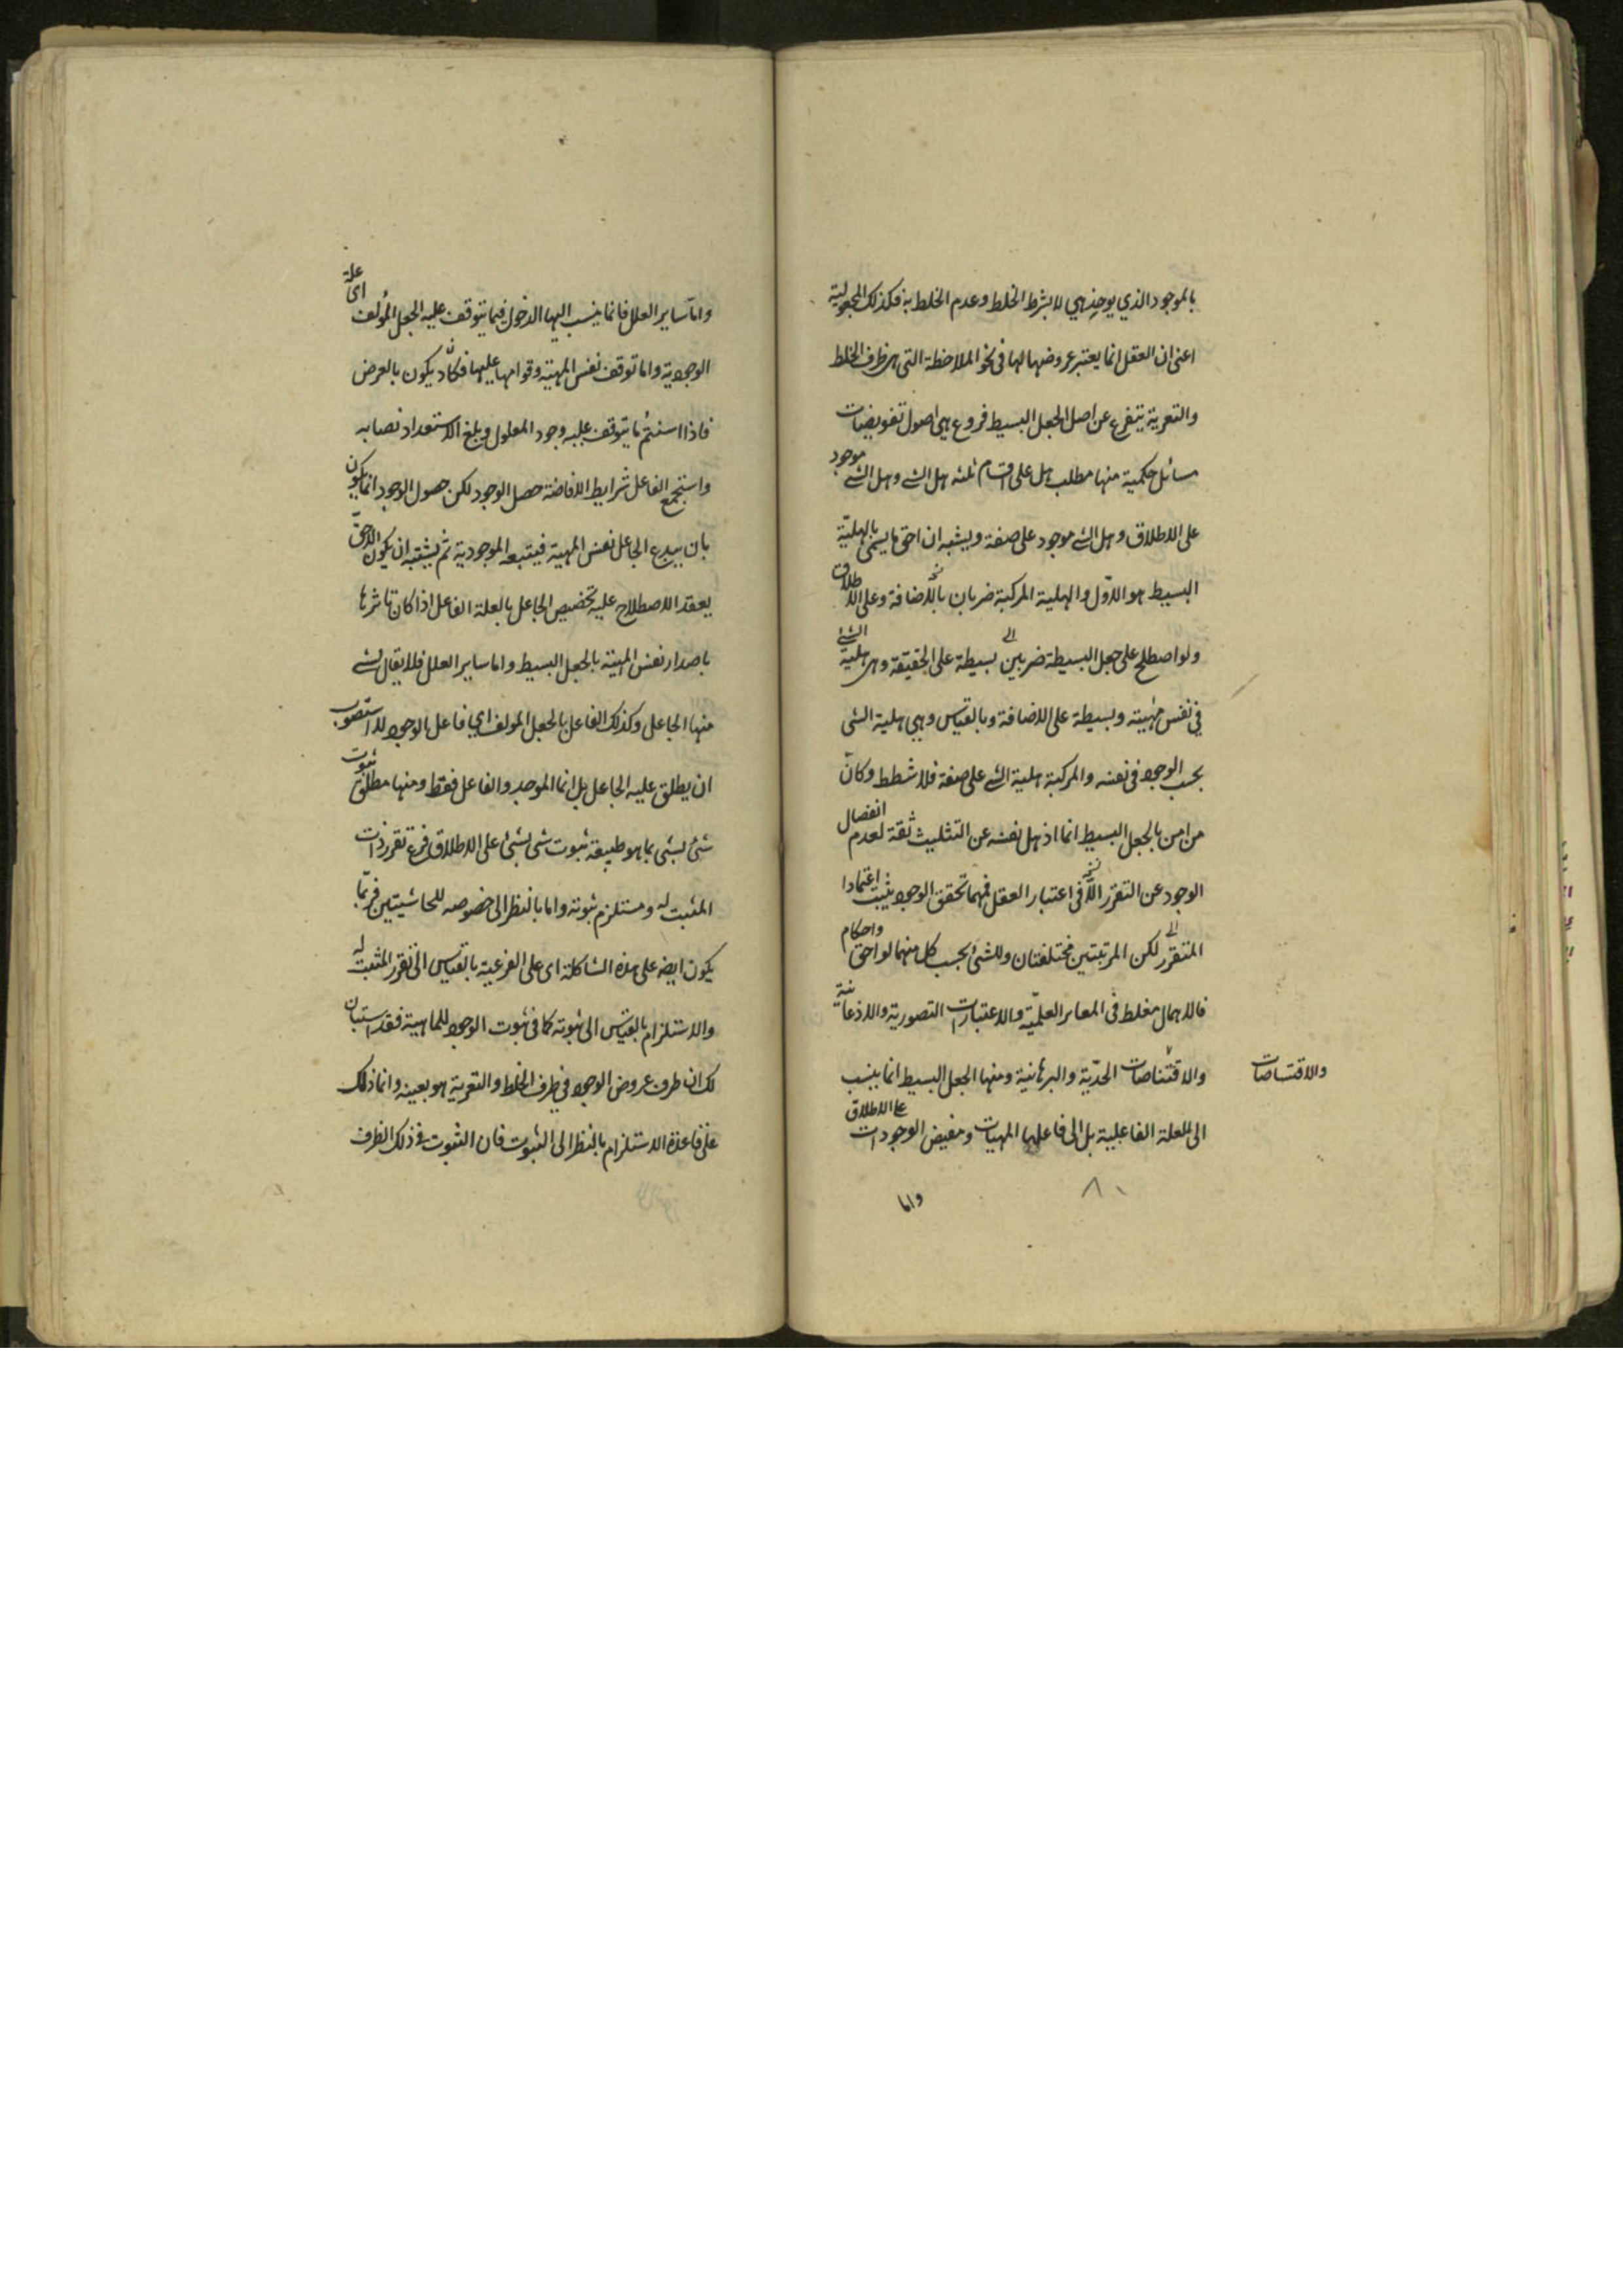 بالموجود الذي يوخذ هي لا بشرط الخلط وعدم الخلط به فكذلك المجعولية
اعنى ان العقل انما يعتبر عروضها لها فى نحو الملاحظة التى هى ظرف الخلط
والتعرية يتفرع عن اصل الجعل البسيط فروع هي اصول تفويضات
مسائل حكمية منها مطلب هل على اقسام ثلثه هل الشئ وهل الشئ موجود
على الاطلاق وهل الشئ موجود على صفة ويشبه ان احق ما يسمى بالهليّة
البسيط هو الاوّل والهلية المركبة ضربان بالاضافة وعلى الاطلاق
ولو اصطلح على جعل البسيطة ضربين الى بسيطة على الحقيقة وهى هلية الشئ
في نفس مهيته وبسيطة على الاضافة وبالقياس وهي هلية الشى
بحسب الوجود فى نفسه والمركبة هلية الشئ على صفة فلا شطط وكانّ
من امن بالجعل البسيط انما اذهل نفسه عن التثليث ثقة لعدم انفصال
الوجود عن التقرر الا فى اعتبار العقل فمهما تحقق الوجود يثبت اعتمادا
المتقرر الى لكن المرتبتين مختلفتان وللشئ بحسب كل منهما لواحق واحكام
فالاهمال مغلط فى المعاير العلميّة والاعتبارات التصورية والاذعانية
والاقتناصات الحدّية والبرهانية ومنها الجعل البسيط انما ينسب
والاقتساصات
الى العلة الفاعلية بل الى فاعلها المهيات ومفيض الوجودات على الاطلاق
٨١
واما
واما ساير العلل فانما ينسب اليها الدخول فيما يتوقف عليه الجعل المؤلف اى علة
الوجودية واما توقف نفس المهية وقوامها عليها فكانّه يكون بالعرض
فاذا استتم ما يتوقف عليه وجود المعلول وبلغ الاستعداد نصابه
واستجمع الفاعل شرايط الافاضة حصل الوجود لكن حصول الوجود انما يكون
بان يبدع الجاعل نفس المهية فيتبعه الموجودية ثم يشبه ان يكون الاحق
يعقد الاصطلاح عليه تخصيص الجاعل بالعلة الفاعل اذا كان تاثرها
باصدار نفس المهية بالجعل البسيط واما ساير العلل فلا يقال لشئ
منها الجاعل وكذلك الفاعل بالجعل المولف اي فاعل بالوجود لا استصوب
ان يطلق عليه الجاعل بل انما الموجد والفاعل فقط ومنها مطلق ثبوت
شئ لشئ بما هو طبيعة ثبوت شى لشئ على الاطلاق فرع تقرر ذات
المثبت له ومستلزم ثبوته واما بالنظر الى خصوصه للحاشيتين فربّما
يكون ايضه على هذه الشاكلة اى على الفرعية بالقياس الى تقرر المثبت له
والاستلزام بالقياس الى ثبوته كما فى ثبوت الوجود للماهية فقد استبان
لك ان ظرف عروض الوجود في ظرف الخلط والتعرية هو بعينه وانما ذلك
على قاعدة الاستلزام بالنظر الى الثبوت فان الثبوت فى ذلك الظرف